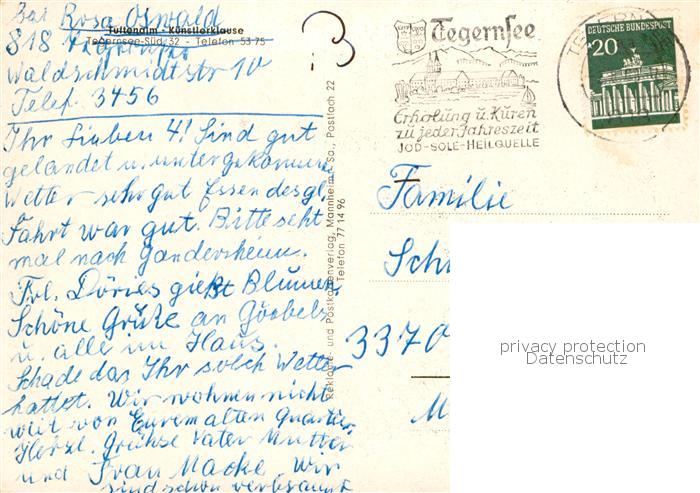 bei Rosa Oswald
818 Tegernsee
Waldschmidtstr 10
Telef. 3456
Tuftenalm - Künstlerklause
Tegernsee-Süd, 32 - Telefon 53 75
Ihr Lieben 4! Sind gut
gelandet u. untergekommen
Wetter sehr gut Essen desgl.
Fahrt war gut. Bitte seht
mal nach Gandersheim.
Frl. Döries gießt Blumen.
Schöne Grüße an Göobels
u. alle im Haus.
Schade das Ihr solch Wetter
hattet. Wir wohnen nicht
weit von Eurem alten Quartier
Herzl. Grühse Vater Mutter
und Frau Macke. Wir
sind schon verbrannt
Reklame- und Postkartenverlag, Mannheim 1, Postfach 22
Telefon 77 14 96
Tegernsee
Erholung u. Kuren
zu jeder Jahreszeit
JOD-SOLE-HEILQUELLE
DEUTSCHE BUNDESPOST
20
Familie
Sch
3370
privacy protection
Datenschutz